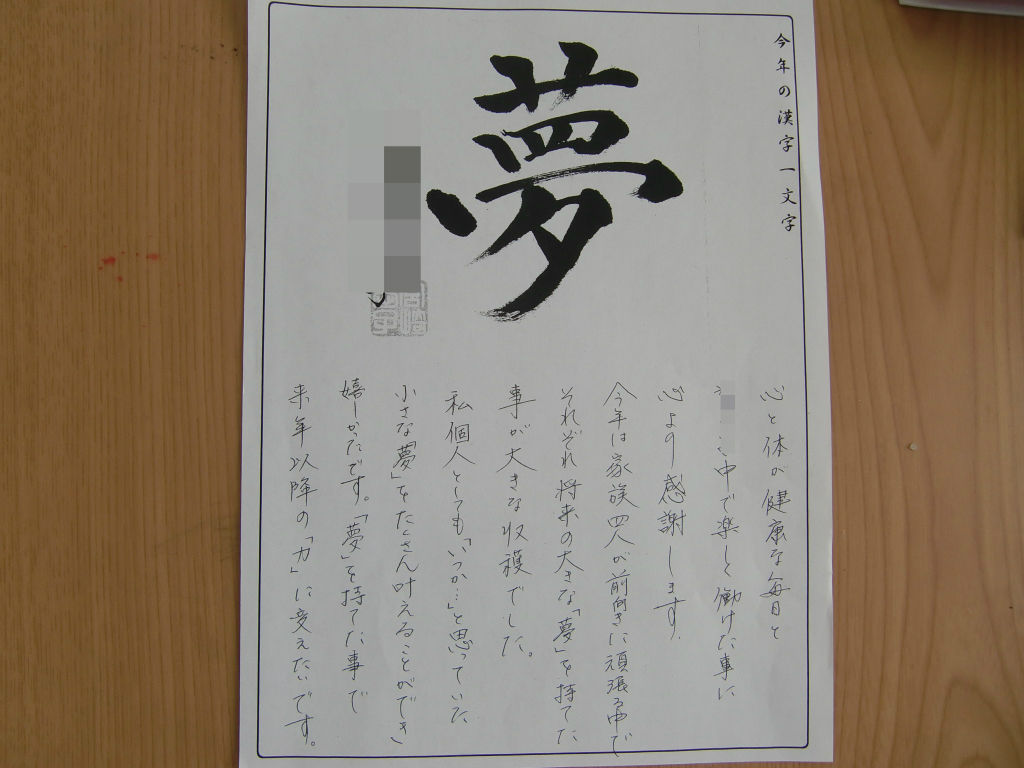 今年の漢字一文字
夢
心と体が健康な毎日と
中で楽しく働けた事に
心より感謝します。
今年は家族四人が前向きに頑張る事で
それぞれ将来の大きな「夢」を持てた
事が大きな収穫でした。
私個人としても「いつか…」と思っていた
小さな夢をたくさん叶えることができ
嬉しかったです。「夢」を持てた事で
来年以降の「力」に変えたいです。